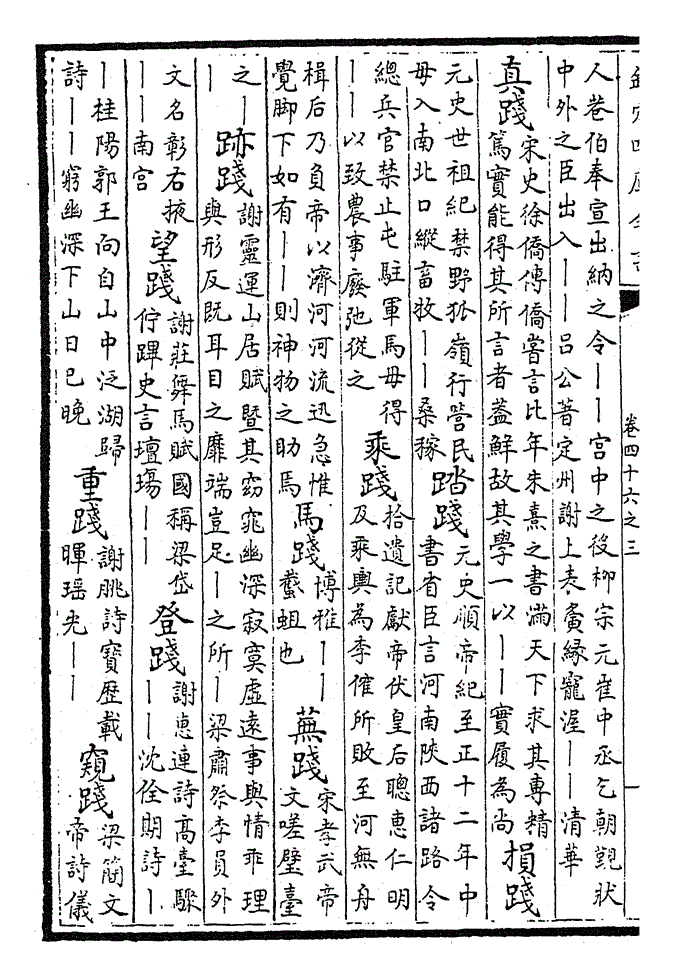 欽定四庫全書
卷四十六之三
一
人巷伯奉宣出納之令——宫中之役柳宗元崔中丞乞朝覲狀
中外之臣出入——吕公著定州謝上表夤緣寵渥——清華
真踐
宋史徐僑傳僑嘗言比年朱熹之書滿天下求其專精
篤實能得其所言者葢鮮故其學一以——實履為尚
損踐
元史世祖紀禁野狐嶺行營民
毋入南北口縱畜牧——桑稼
踏踐
元史順帝紀至正十二年中
書省臣言河南陜西諸路令
總兵官禁止屯駐軍馬毋得
——以致農事廢弛從之
乘踐
拾遺記獻帝伏皇后聰惠仁明
及乘輿為李傕所敗至河無舟
楫后乃負帝以濟河河流迅急惟
覺脚下如有——則神物之助焉
馬踐
博雅——
䘉蛆也
蕪踐
宋孝武帝
文嗟壁臺
之—
—
跡踐
謝靈運山居賦暨其窈窕幽深寂寞虚遠事與情乖理
與形反既耳目之靡端豈足—之所—梁肅祭李員外
文名彰右掖
——南宫
望踐
謝莊舞馬賦國稱梁岱
佇蹕史言壇場——
登踐
謝惠連詩高臺驟
——沈佺期詩—
—桂陽郭王向自山中泛湖歸
詩——窮幽深下山日已晚
重踐
謝朓詩寶歷載
暉瑶光——
窺踐
梁簡文
帝詩儀